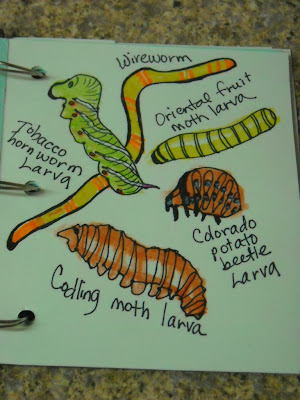 Wireworm
Oriental fruit
moth larva
Tobacco
hornworm
Larva
Colorado
potato
beetle
Larva
Codling moth larva